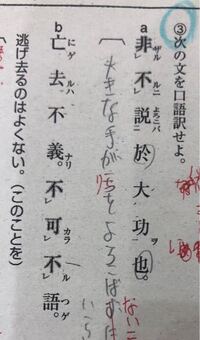 ③次の文を口語訳せよ。
a 非ザルニ不ルニ説よろこバ於大功ヲ也。
大きな手が
をよろこばずに
いら
ないこ
b 亡にゲ去ルハ不義ナリ。不可カラ不ル語つゲ。
逃げ去るのはよくない。(このことを)